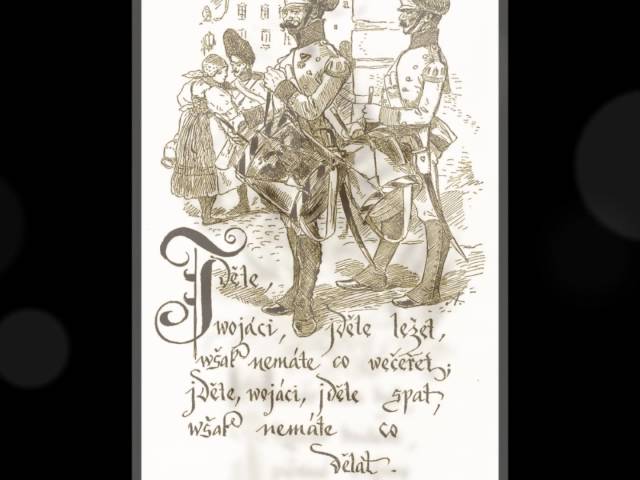 Jděte,
wojáci, jděte ležet,
wšak nemáte co wečeřet;
jděte, wojáci, jděte spat,
wšak nemáte co
dělat.